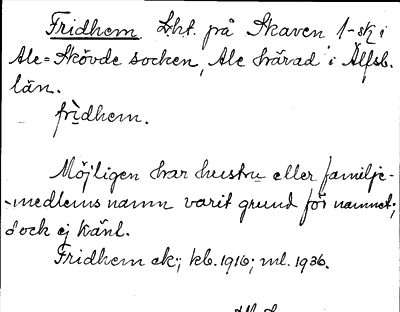 Fridhem. Lht. på Skaven 1-sk i
Ale=Skövde socken, Ale härad i Älfsb.
län.
frìdhem.
Möjligen har hustru eller familje-
-medlems namn varit grund för namnet;
dock ej känt.
Fridhem ek; kb. 1916; ml. 1936.